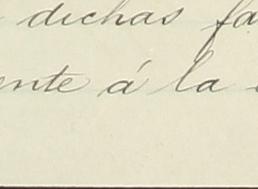 dichas fa
ente á la